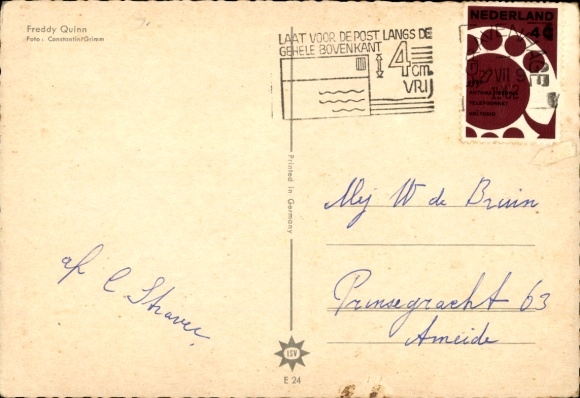 Freddy Quinn
Foto: Constantin/Grimm
LAAT VOOR DE POST LANGS DE
GEHELE BOVENKANT
4 cm
VRIJ
NEDERLAND
4c
22 VII 9
Printed in Germany
Mej W de Bruin
Prinsegracht 63
Ameide
af C Straver
ISV
E 24